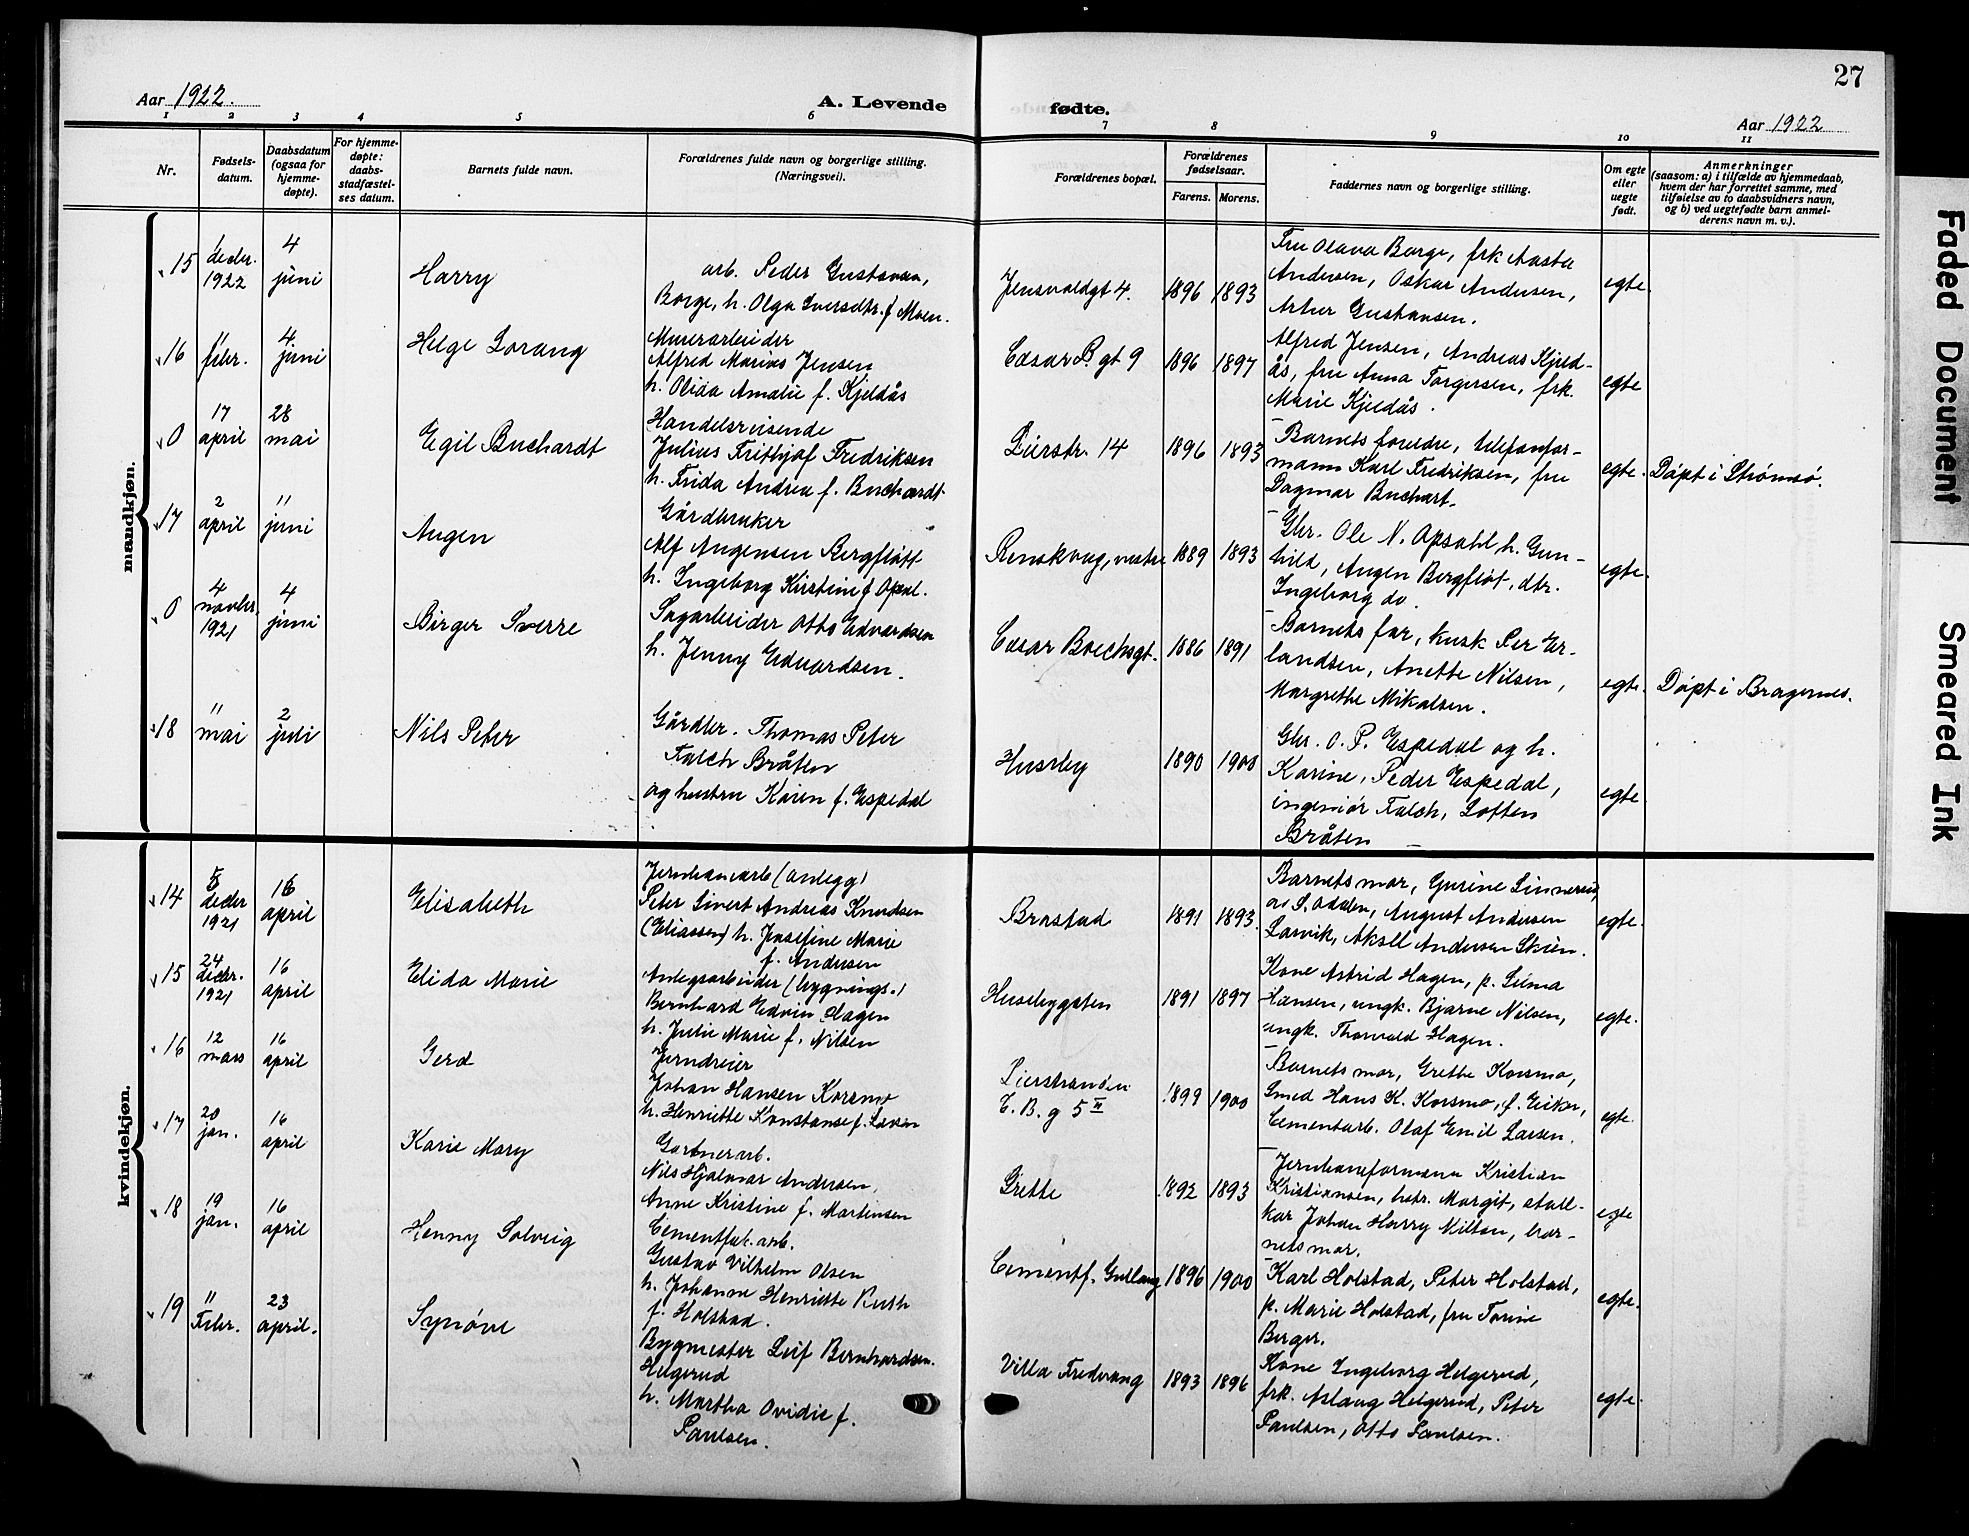 27
Aar 1922.
A. Levende fødte.
Aar 1922
1 2 3 4 5 6 7 8 9 10 11
Nr.
Fødsels-
datum.
Daabsdatum
(ogsaa for
hjemme-
døpte).
For hjemme-
døpte:
daabs-
stadfæstel-
ses datum.
Barnets fulde navn.
Forældrenes fulde navn og borgerlige stilling.
(Næringsvei).
Forældrenes bopæl.
Forældrenes
fødselsaar.
Farens. Morens.
Faddernes navn og borgerlige stilling.
Om egte
eller
uegte
født.
Anmerkninger
(saasom: a) i tilfælde av hjemmedaab,
hvem der har forrettet samme, med
tilføielse av to daabsvidners navn,
og b) ved uegtefødte barn anmel-
derens navn m. v.).
mandkjøn.
15
decbr.
1922
4
juni
Harry
arb. Peder Gustavsen,
Borge, h. Olga Iversdtr. f Moen.
Jensvoldgt 4.
1896 1893
Fru Olava Borge, frk Aasta
Andersen, Oskar Andersen,
Artur Gustavsen.
egte.
16
febr.
4
juni
Helge Lorang
Murerarbeider
Alfred Marius Jensen
h. Olida Amalie f. Kjeldås
Cæsar B. gt 9
1896 1897
Alfred Jensen, Andreas Kjeld-
ås, fru Anna Torgersen, frk.
Marie Kjeldås.
egte
0
17
april
28
mai
Egil Buchardt
Handelsreisende
Julius Frithjof Fredriksen
h. Frida Andrea f. Buchardt
Lierstr. 14
1896 1893
Barnets foreldre, telefonfor-
mann Karl Fredriksen, fru
Dagmar Buchart.
egte.
Døpt i Strømsø.
17
2
april
11
juni
Augen
Gårdbruker
Alf Augensen Bergfløtt
h. Ingeborg Kirstine f Opsal.
Renskoug, vestre
1889 1893
Gbr. Ole N. Opsahl h. Gun-
hild, Augen Bergfløt, dtr.
Ingeborg do.
egte.
0
4
novbr.
1921
4
juni
Birger Sverre
Sagarbeider Otto Edvardsen
h. Jenny Edvardsen.
Cæsar Boechsgt.
1886 1891
Barnets far, kusk Per Er-
landsen, Anette Nilsen,
Margrethe Mikalsen.
egte.
Døpt i Bragernes.
18
11
mai
2
juli
Nils Peter
Gårdbr. Thomas Peter
Falch Bråten
og hustru Karen f. Espedal
Huseby
1890 1900
Gbr. O. P. Espedal og h.
Karine, Peder Espedal,
ingeniør Falch, Loften
Bråten
egte
kvindekjøn.
14
5
decbr
1921
16
april
Elisabeth
Jernbanearb (anlegg)
Peter Sivert Andreas Knudsen
(Eliassen) h. Josefine Marie
f. Andersen
Brastad
1891 1893.
Barnets mor, Gurine
August Andersen
Larvik, Aksel Andersen Skien.
egte.
15
24
decbr.
1921
16
april
Elida Marie
Anlegsarbeider (bygnings.)
Bernhard Edvin Hagen
h. Julie Marie f. Nilsen
Husebygaten
1891 1897
Kone Astrid Hagen, p. Selma
Hansen, ungk. Bjarne Nilsen,
ungk. Thorvald Hagen.
egte.
16
12
mars
16
april
Gerd
Jerndreier
Johan Hansen Korsmo
h. Henriette Konstanse f. Larsen
Lierstranden
C. B. g 5 II
1899 1900
Barnets mor, Grethe Korsmo,
Smed Hans K. Korsmo, f. Eiker,
Cementarb. Olaf Emil Larsen.
egte.
17
20
jan.
16
april
Karie Mary
Gartnerarb.
Nils Hjalmar Andersen,
Anne Kristine f. Martinsen
Grette
1892 1893
Jernbaneformann Kristian
Kristiansen, hstr. Margit, stall-
kar Johan Harry Milton, bar-
nets mor.
egte
18
19
jan.
16
april
Henny Solveig
Cementfab. arb.
Gustav Vilhelm Olsen
h. Johanne Henriette Ruth
f. Holstad.
Cementf. Gullaug
1896 1900
Karl Holstad, Peter Holstad,
p. Marie Holstad, fru Torine
Berger.
egte.
19
11
Febr.
23
april.
Synøve
Bygmester Leif Bernhardsen
Helgerud
h. Martha Ovidie f.
Paulsen.
Villa Fredvang
1893 1896
Kone Ingeborg Helgerud,
frk. Aslaug Helgerud, Peter
Paulsen, Otto Paulsen.
egte.
Faded Document
Smeared Ink